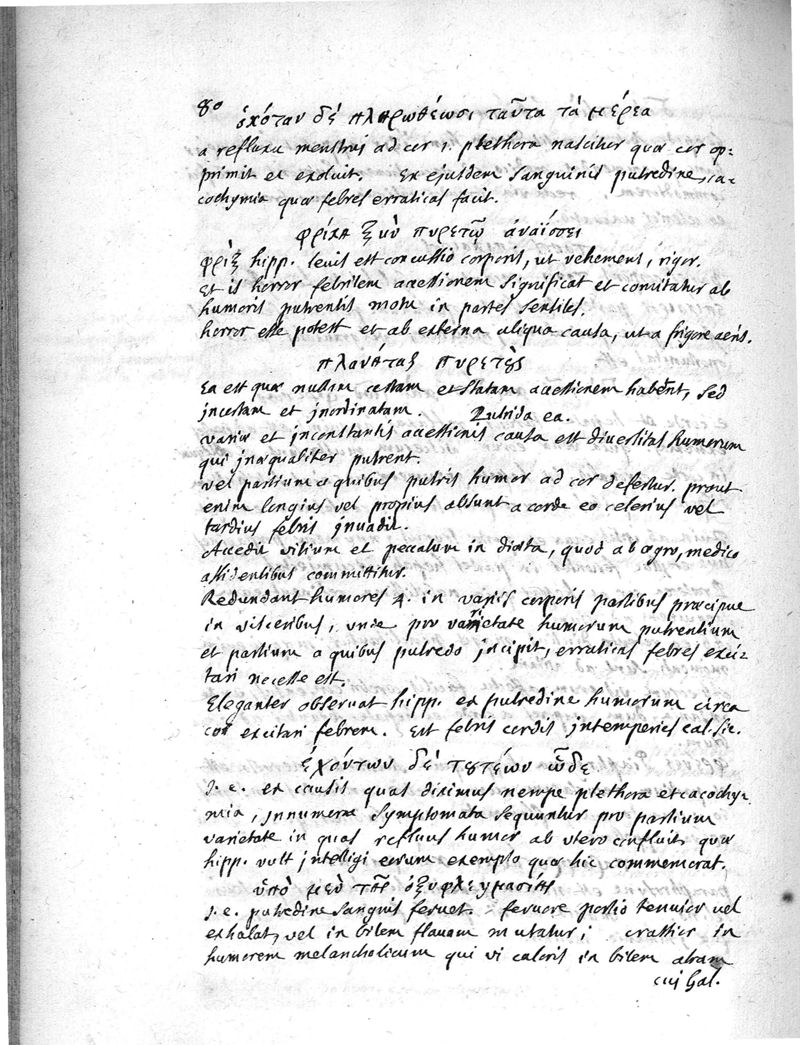 80 ὁκόταν δέ πληρωθέωσι ταῦτα τὰ μέρεα
a refluxu menstruj ad cor j. plethora nascitur quæ cor op=
primit et exoluit. Ex ejusdem sanguinis putredine, ca-
cochymia quæ febres erraticas facit.
φρίκη ξὺν πυρετῷ ἀναΐσσει
φρὶξ hipp. leuis est concussio corporis, ut vehemens, rigor.
Et is horror febrilem accessionem significat et comitatur ab
humoris putrentis motu in partes sentiles.
horror esse potest et ab externa aliqua causa, ut a frigore aeris.
πλανήτας πυρετούς
Ea est quæ nullam certam et statam accessionem habent, sed
jncertam et jnordinatam. Putrida ea.
variæ et jnconstantis accessionis causa est diuersitas humorum
qui jnæqualiter putrent.
vel partium e quibus putris humor ad cor defertur. prout
enim longius vel propius absunt a corde eo celerius vel
tardius febris jnuadit.
Accedit vitium et peccatum in diæta, quod ab ægro, medico
assidentibus committitur.
Redundant humores 4. in varijs corporis partibus præcipue
in visceribus, unde pro varietate humorum putrentium
et partium a quibus putredo jncipit, erraticas febres exci-
tari necesse est.
Eleganter obseruat hipp. ex putredine humorum circa
cor excitari febrem. Est febris cordis jntemperies cal. sic.
ἐχόντων δέ τουτέων ὧδε
j. e. ex causis quas diximus nempe plethora et cacochy-
mia, jnnumera symptomata sequuntur pro partium
varietate in quas refluus humor ab utero confluit, quæ
hipp. vult jntelligi eorum exemplo quæ hic commemorat.
ὑπὸ μεὺ τῆς ὀξυφλεγμασίης
j. e. putredine sanguis feruet. feruore portio tenuior vel
exhalat, vel in bilem flauam mutatur; crassior in
humorem melancholicum qui vi caloris in bilem atram
cuj Gal.